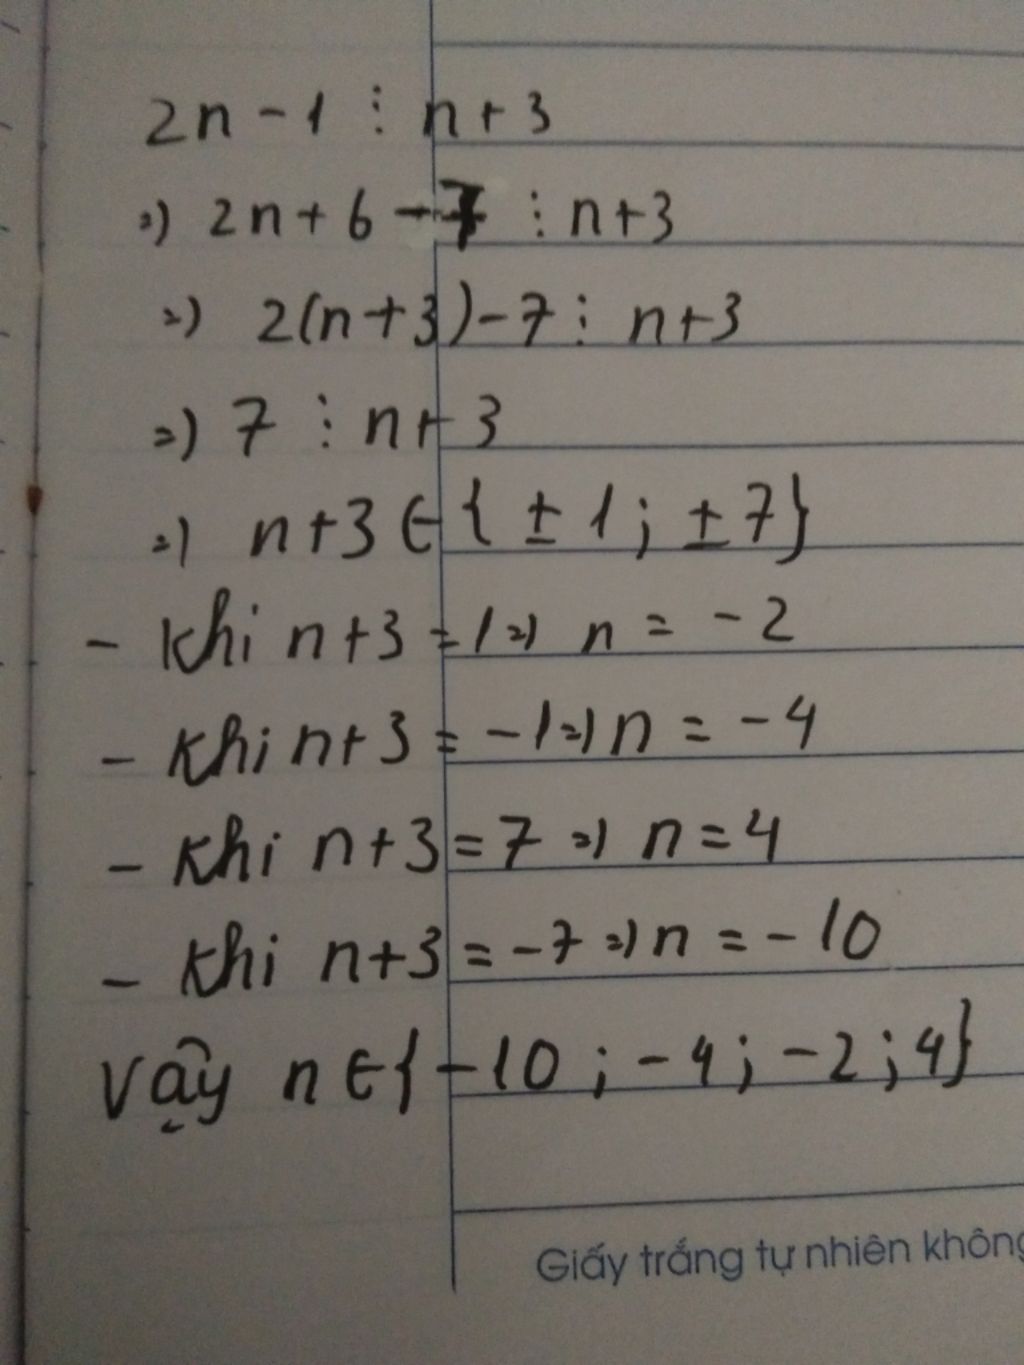 2n - 1 ⋮ n + 3
=) 2n + 6 - 7 ⋮ n+3
=) 2(n+3) - 7 ⋮ n+3
=) 7 ⋮ n+3
=) n+3 ∈ { ± 1 ; ± 7}
- khi n+3 = 1 =) n = -2
- khi n+3 = -1 =) n = -4
- khi n+3 = 7 =) n = 4
- khi n+3 = -7 =) n = -10
Vậy n ∈ {-10 ; -4 ; -2 ; 4}
Giấy trắng tự nhiên không